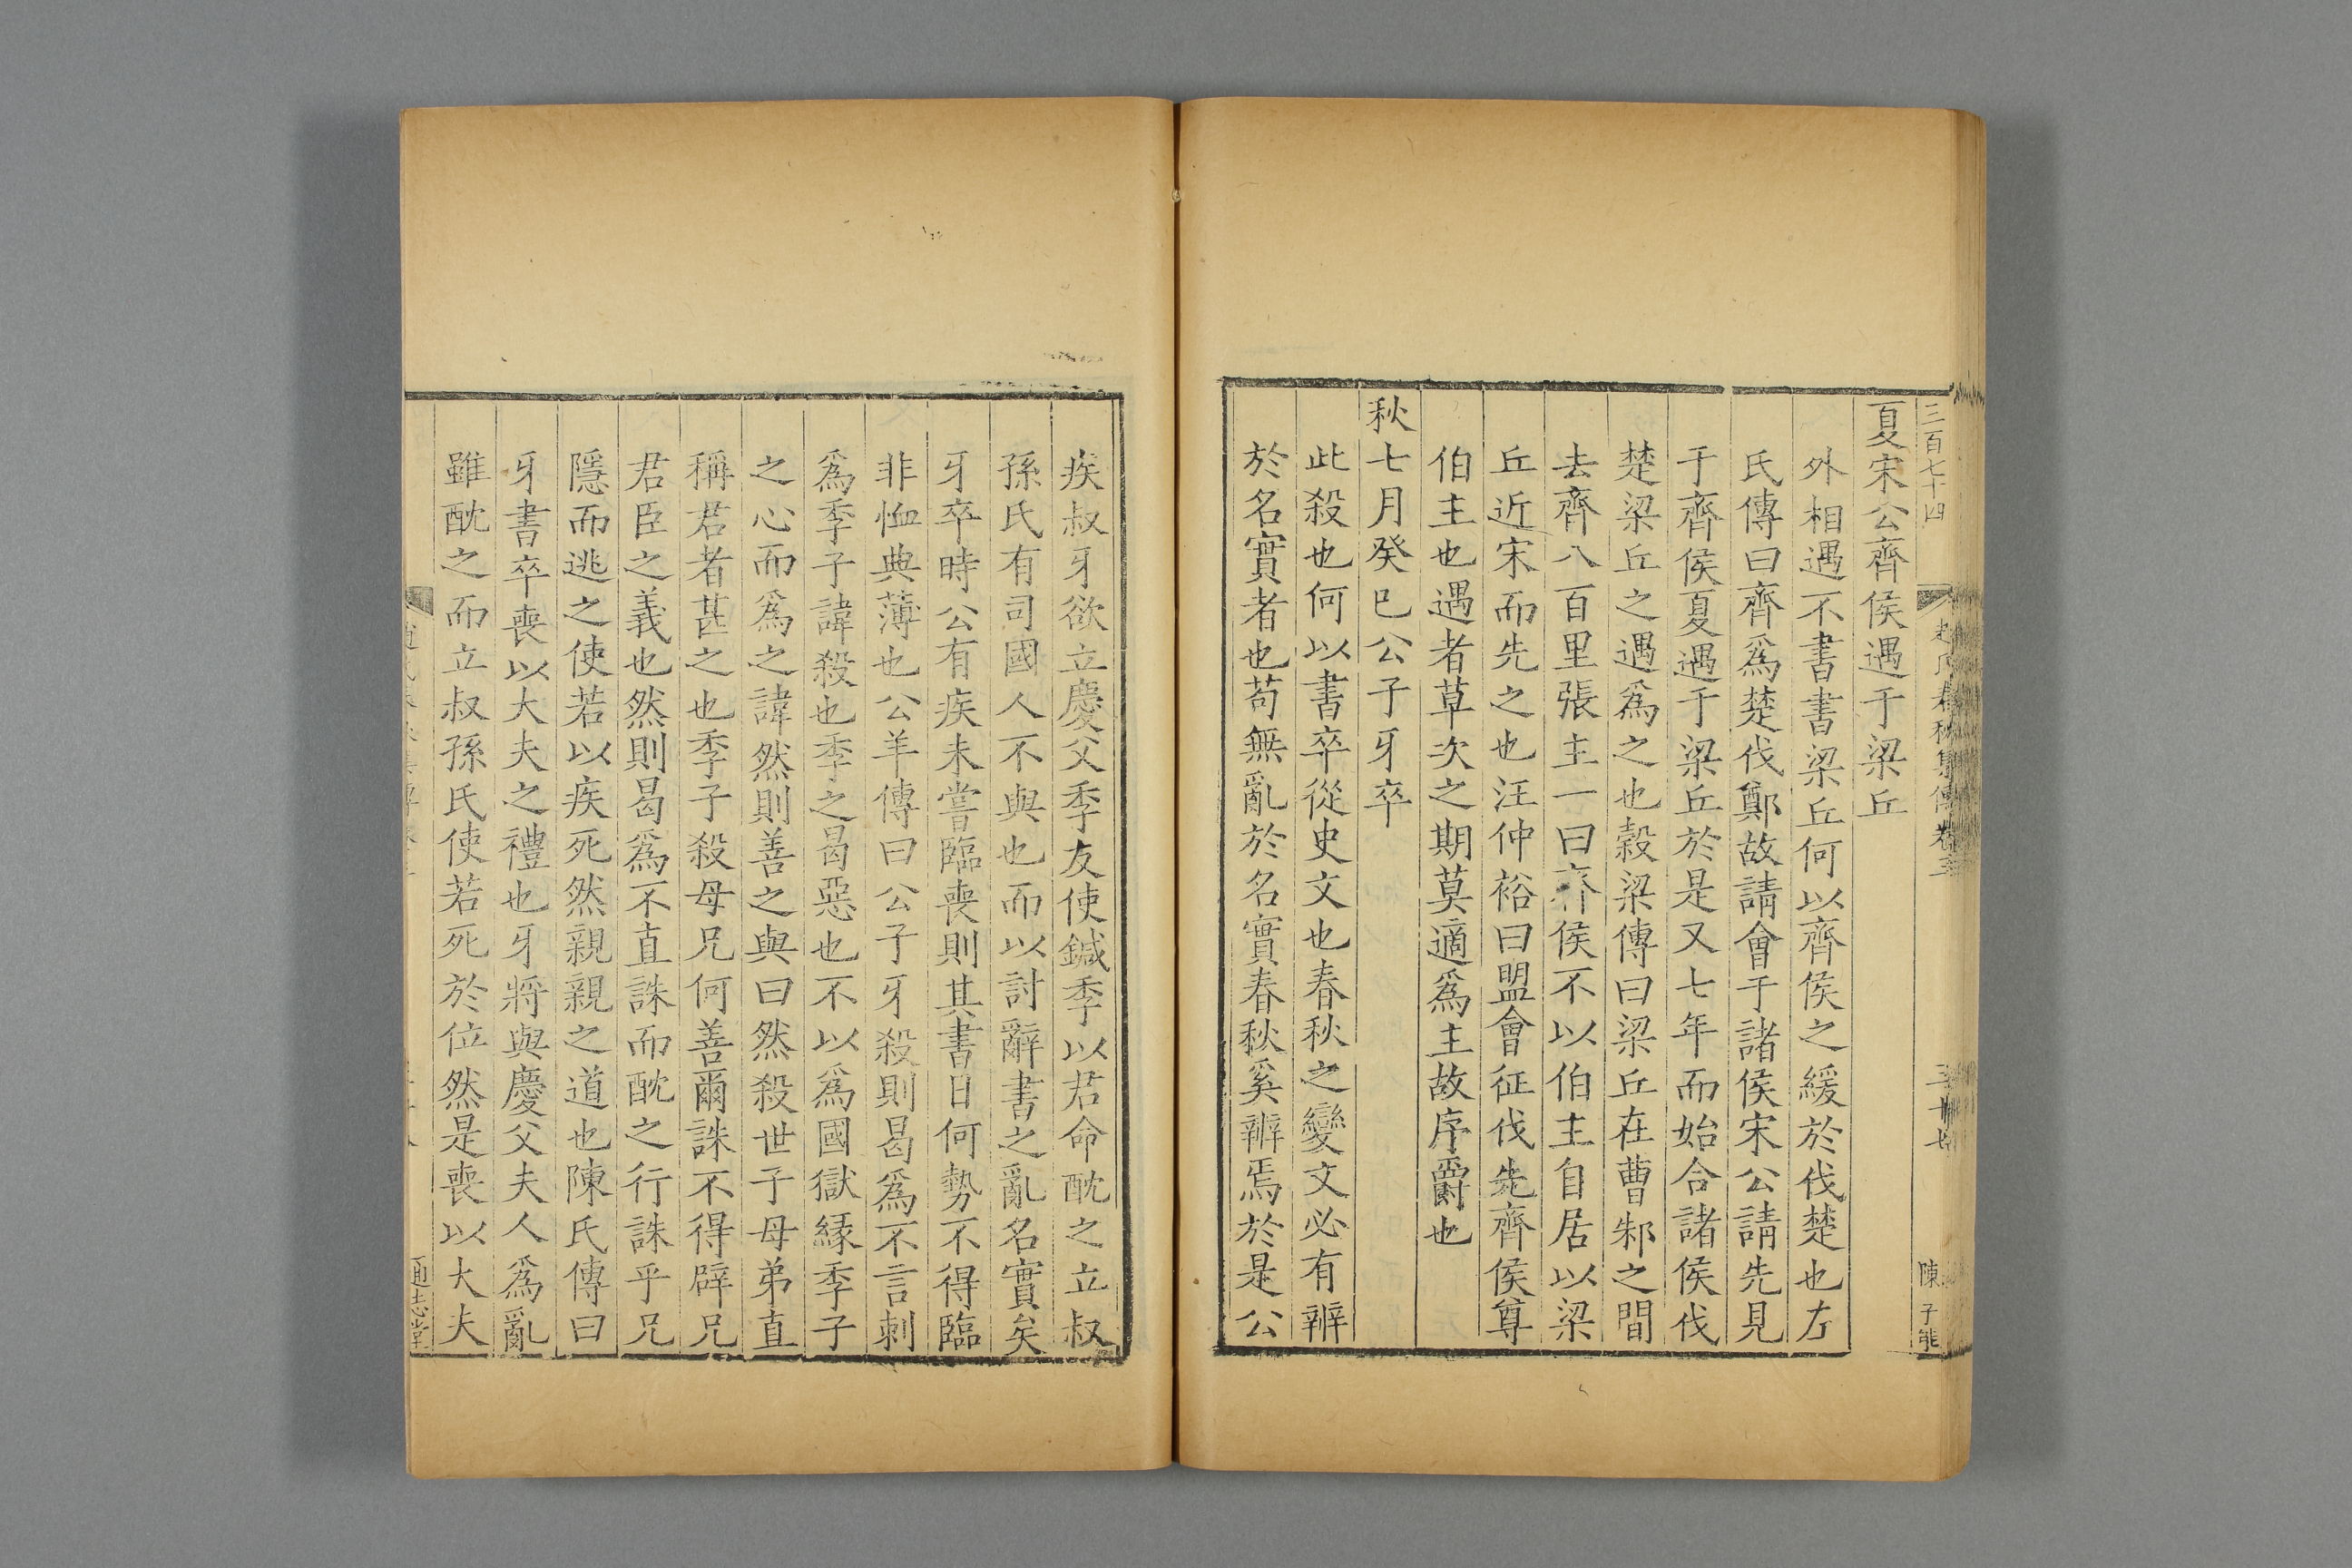 三百七十四
趙氏春秋集傳 卷三
陳子能
夏宋公齊侯遇于梁丘
外相遇不書書梁丘何以齊侯之緩於伐楚也左
氏傳曰齊爲楚伐鄭故請會于諸侯宋公請先見
于齊侯夏遇于梁丘於是又七年而始合諸侯伐
楚梁丘之遇爲之也穀梁傳曰梁丘在曹邾之間
去齊八百里張主一曰齊侯不以伯主自居以梁
丘近宋而先之也汪仲裕曰盟會征伐先齊侯尊
伯主也遇者草次之期莫適爲主故序爵也
秋七月癸巳公子牙卒
此殺也何以書卒從史文也春秋之變文必有辨
於名實者也苟無亂於名實春秋奚辨焉於是公
疾叔牙欲立慶父季友使鍼季以君命酖之立叔
孫氏有司國人不與也而以討辭書之亂名實矣
牙卒時公有疾未嘗臨喪則其書日何勢不得臨
非恤典薄也公羊傳曰公子牙殺則曷爲不言刺
爲季子諱殺也季之曷惡也不以爲國獄縁季子
之心而爲之諱然則善之與曰然殺世子母弟直
稱君者甚之也季子殺母兄何善爾誅不得辟兄
君臣之義也然則曷爲不直誅而酖之行誅乎兄
隱而逃之使若以疾死然親親之道也陳氏傳曰
牙書卒喪以大夫之禮也牙將與慶父夫人爲亂
雖酖之而立叔孫氏使若死於位然是喪以大夫
通志堂